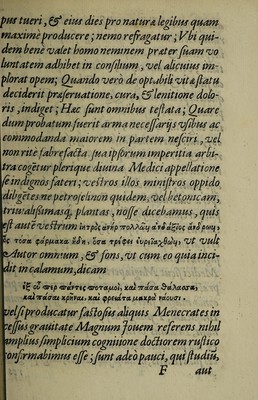 pus tueri, & eius dies pro naturæ legibus quam
maximè producere; nemo refragatur; Vbi qui-
dem benè valet homo neminem præter suam vo
luntatem adhibet in consilium, vel alicuius im-
plorat opem; Quando verò de optabili vitæ statu
deciderit præseruatione, cura, & lenitione dolo-
ris, indiget; Hæc sunt omnibus testata; Quare
dum probatum fuerit arma necessarijs vsibus ac
commodanda maiorem in partem nesciri, vel
non rite fabrefacta sua ipsorum imperitia arbi-
tra cogetur plerique diuina Medici appellatione
se indignos fateri; vestros illos ministros oppido
diligetes ne petroselinon quidem, vel betonicam,
triuialissimasq; plantas, nosse dicebamus, quis
est autē vestrum ἰητρὸς ἀνὴρ πολλῶν ἀντάξιος ἀνδρῶν;
ὃς τόσα φάρμακα ᾔδη, ὅσα τρέφει εὐρεῖα χθών; vt vult
Autor omnium, & fons, vt cum eo quia inci-
dit in calamum, dicam
ἐξ οὗ περ πάντες ποταμοὶ, καὶ πᾶσα θάλασσα,
καὶ πᾶσαι κρῆναι, καὶ φρείατα μακρὰ νάουσι.
vel si producatur fastosus aliquis Menecrates in
cessus grauitate Magnum Iouem referens nihil
amplius simplicium cognitione doctiorem rustico
confirmabimus esse; sunt adeò pauci, qui studiū,
F aut